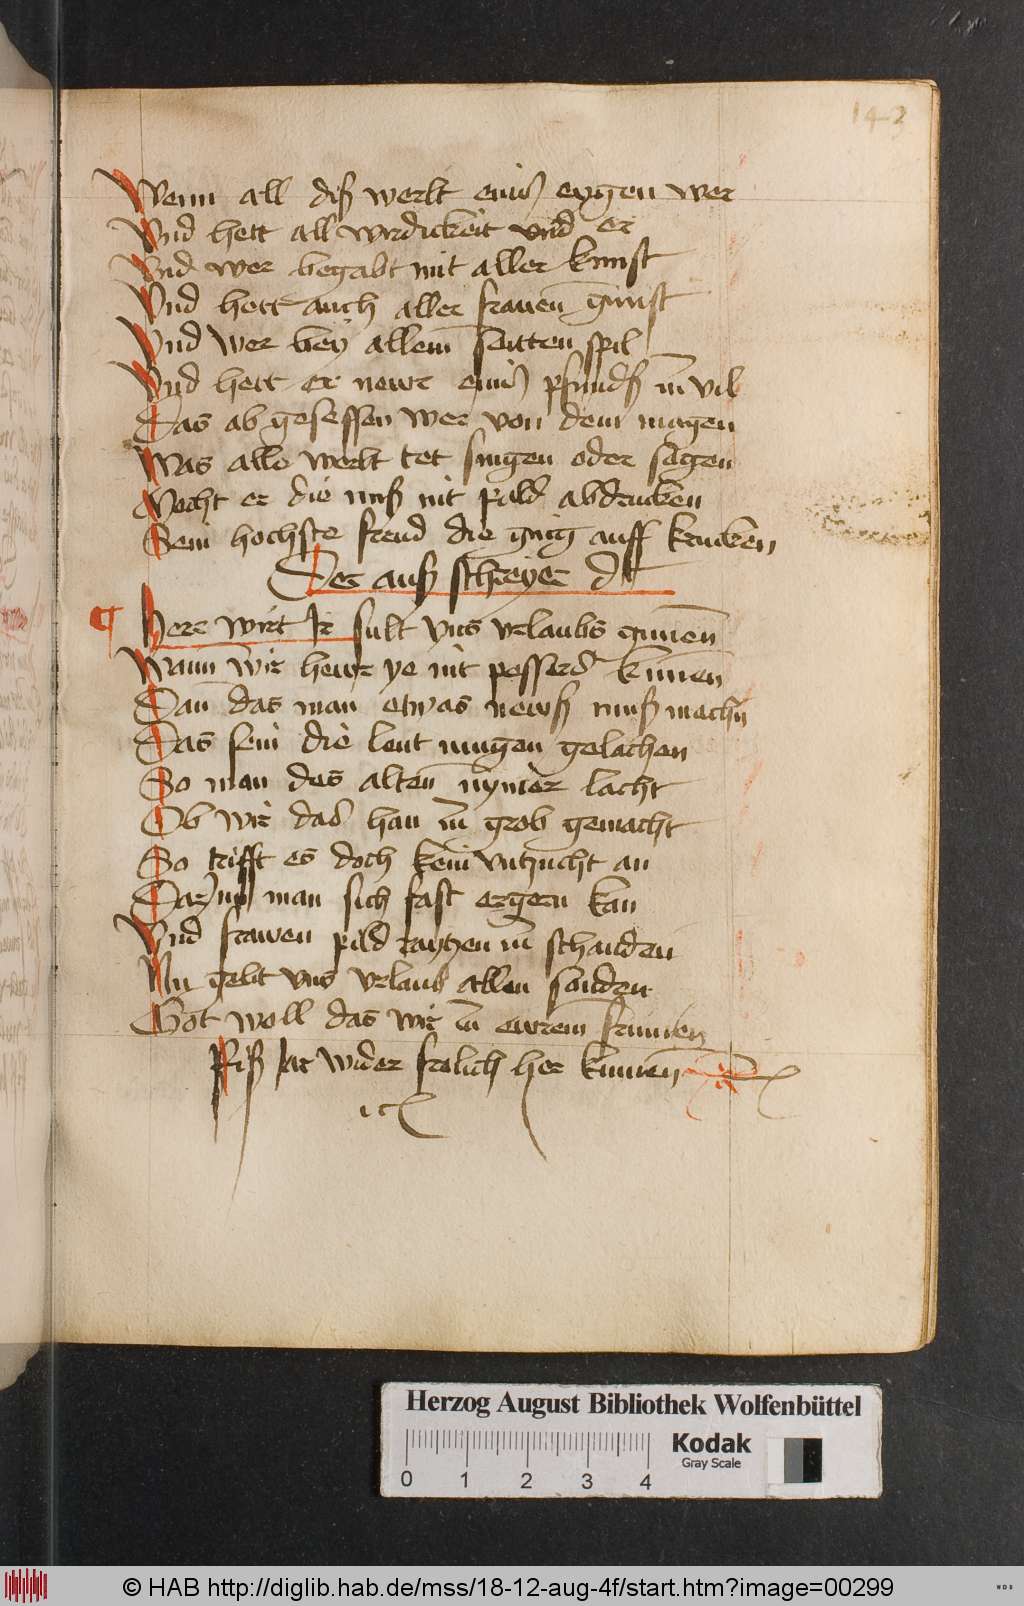 143
Wenn all diß werlt einß eygen wer
Vnd hett all wirdickeit vnd er
Vnd wer begabt mit aller kunst
Vnd hett auch aller frauen gunst
Vnd wer bey allem seitten spil
Vnd hett er newr einß pfundß in vil
Das ab gesessen wer von dem magen
Was alle werlt tet singen oder sagen
Mocht er die nuß nit pald abdrucken
Sein hochste freud die ging auff krucken
Der auß schreyer dt
Herr wirt Ir sult vns vrlaubs gunnen
Wann wir hewr ye nit pesserß kunnen
Dan das man etwas newß muß machn
Das sein die leut mugen gelachen
So man des alten nymer lacht
Ob wir das han zu grob gemacht
So trifft es doch kein vntzucht an
Dar man sich fast ergern kan
Vnd frawen pild raytzen zu schanden
Nu gebt vns vrlaub allen sanden
Got woll das wir in ewrem frumen
Piß jar wider frolich her kumen
Herzog August Bibliothek Wolfenbüttel
Kodak
Gray Scale
0 1 2 3 4
© HAB http://diglib.hab.de/mss/18-12-aug-4f/start.htm?image=00299